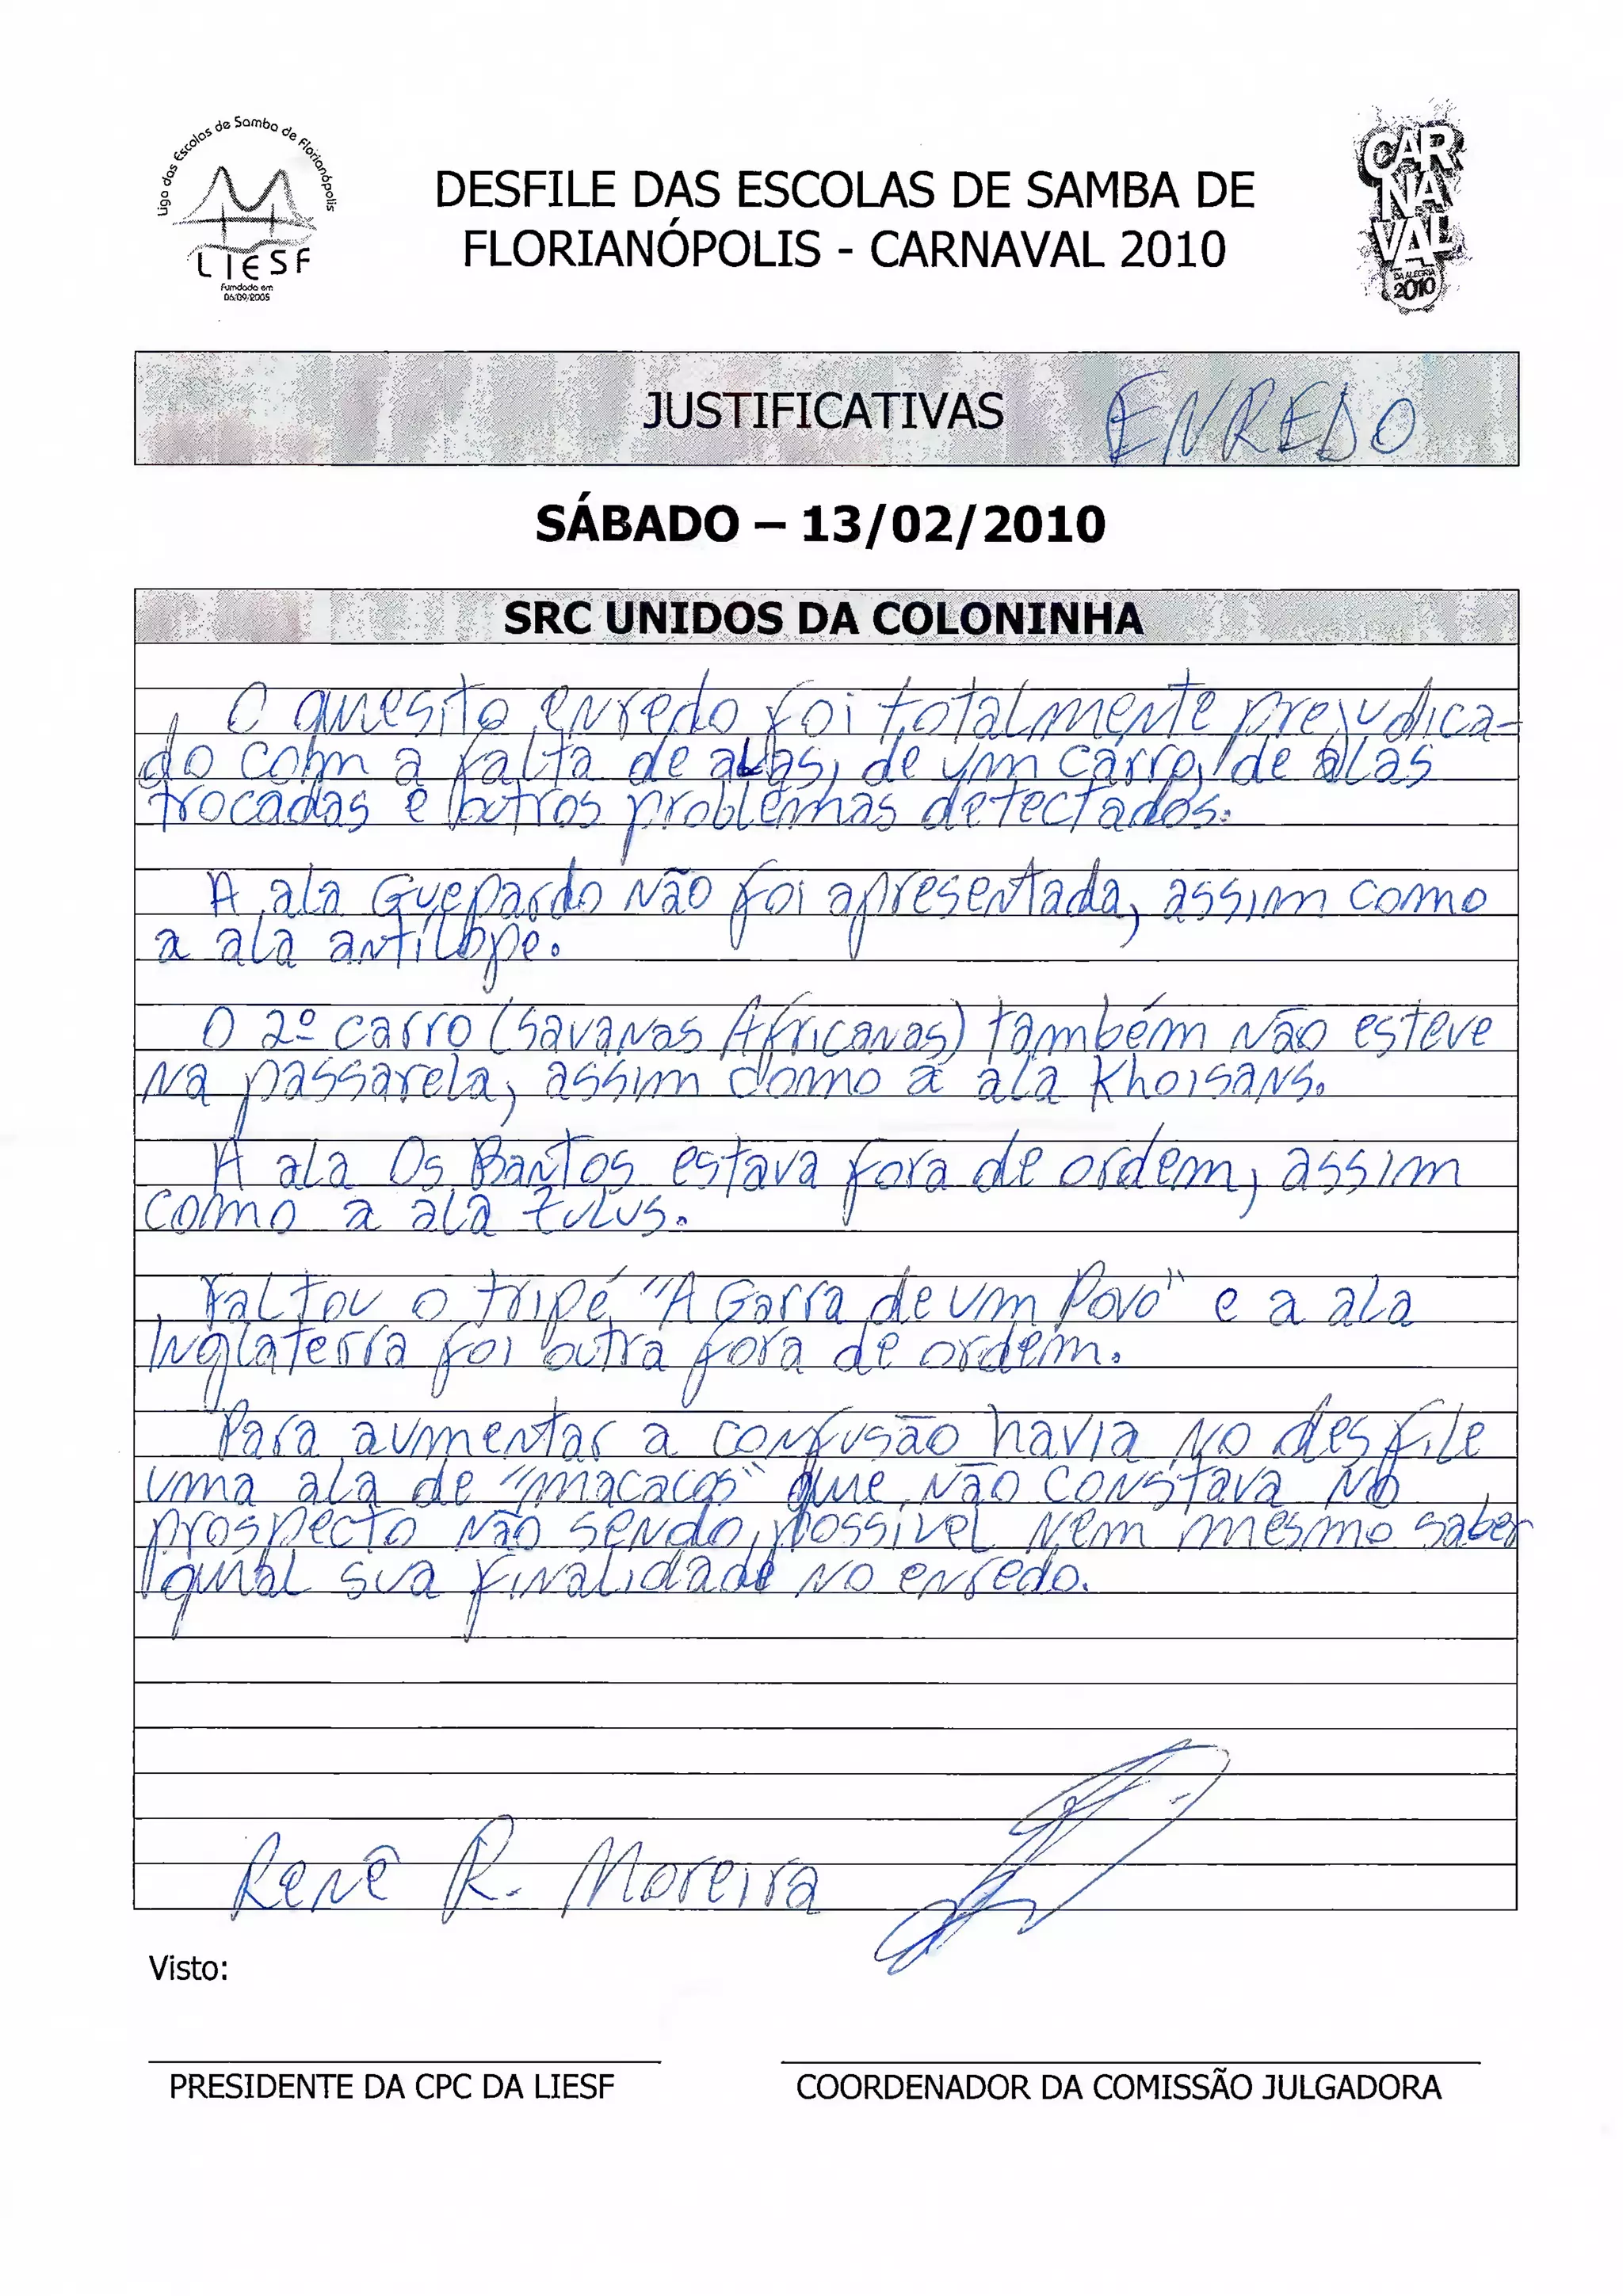 Liga das Escolas de Samba de Florianópolis
LIESF
Fundada em
06/09/2005
DESFILE DAS ESCOLAS DE SAMBA DE
FLORIANÓPOLIS - CARNAVAL 2010
CAR
NA
VAL
DA ALEGRIA
2010
JUSTIFICATIVAS ENREDO
SÁBADO – 13/02/2010
SRC UNIDOS DA COLONINHA
O quesito enredo foi totalmente prejudica-
do com a falta de alas, de um carro, de alas
trocadas e outros problemas detectados.
A ala Guepardo não foi apresentada, assim como
a ala antílope.
O 2º carro (Savanas Africanas) também não esteve
na passarela, assim como a ala Khoisans.
A ala Os Bantos estava fora de ordem, assim
como a ala zulus.
Faltou o tripé "A Garra de um Povo" e a ala
Inglaterra foi outra fora de ordem.
Para aumentar a confusão havia no desfile
uma ala de "macacos" que não constava no
prospecto não sendo possível nem mesmo saber
qual sua finalidade no enredo.
Renê R. Moreira
Visto:
PRESIDENTE DA CPC DA LIESF COORDENADOR DA COMISSÃO JULGADORA